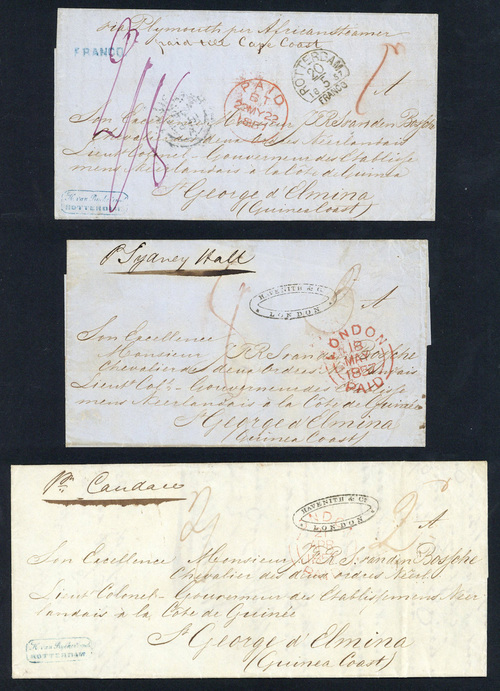 via Plymouth per African steamer
paid till Cape Coast
FRANCO
PAID
22 MY 22
ROTTERDAM
20
5
FRANCO
A
Son Excellence Monsieur J.R.S. van den Bossche
Chevalier des deux ordres Néerlandais
Lieut. Colonel - Gouverneur des Etablisse
mens Néerlandais à la Côte de Guinea
St George d'Elmina
(Guinea Coast)
ROTTERDAM
p Sydney Hall
HAVENITH & Co
LONDON
A
LONDON
18
MAY
1857
PAID
Son Excellence
Monsieur J.R.S. van den Bossche
Chevalier des deux ordres Néerlandais
Lieut. Col. - Gouverneur des Etablisse
mens Neerlandais à la Côte de Guinée
St George d'Elmina
(Guinea Coast)
Pr. Candace
2
HAVENITH & Co
LONDON
2
A
Son Excellence Monsieur J.R.S. van den Bossche
Chevalier des deux ordres Néerl.
Lieut Colonel - Gouverneur des Etablissemens Néer
landais à la Côte de Guinée
St George d'Elmina
(Guinea Coast)
ROTTERDAM